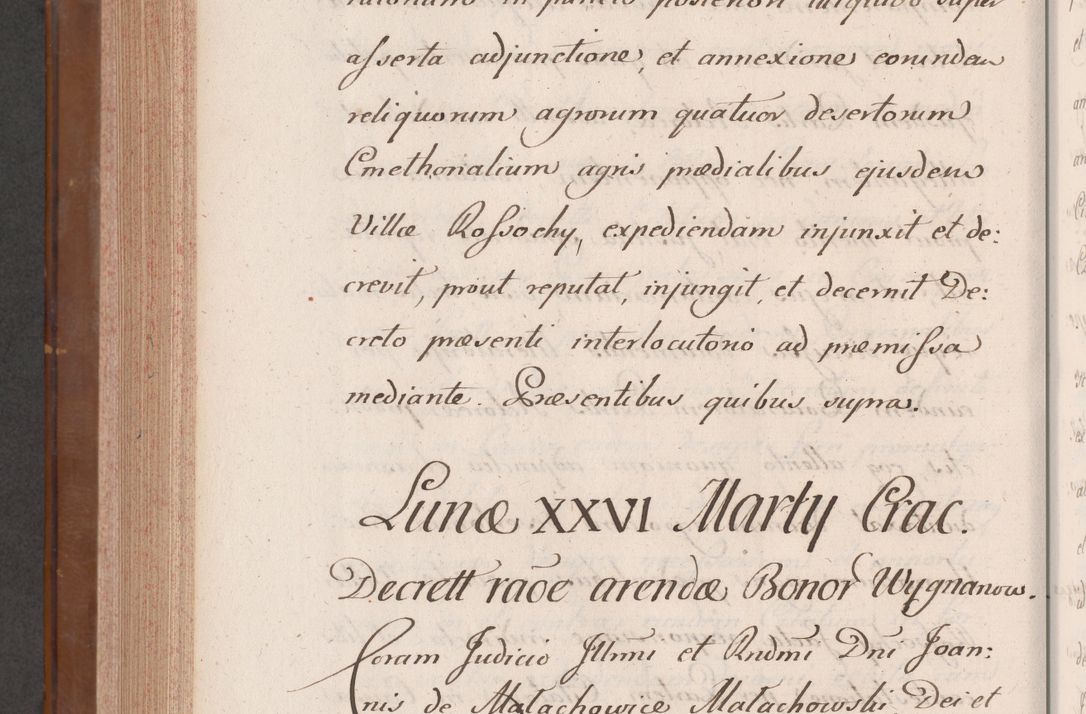 asserta adjunctione, et annexione eorundem
reliquorum agrorum quatuor desertorum
Cmethonalium agris prædialibus ejusdem
Villæ Rossochy, expediendam injunxit et de:
crevit, prout reputat, injungit, et decernit De:
creto præsenti interlocutorio ad præmissa
mediante. Præsentibus quibus supra.
Lunæ XXVI Martÿ Crac.
Decrett raõe arendæ Bonor Wygnanow.
Coram Judicio Illmi et Rndmi Dni Joan:
nis de Małachowice Małachowski Dei et